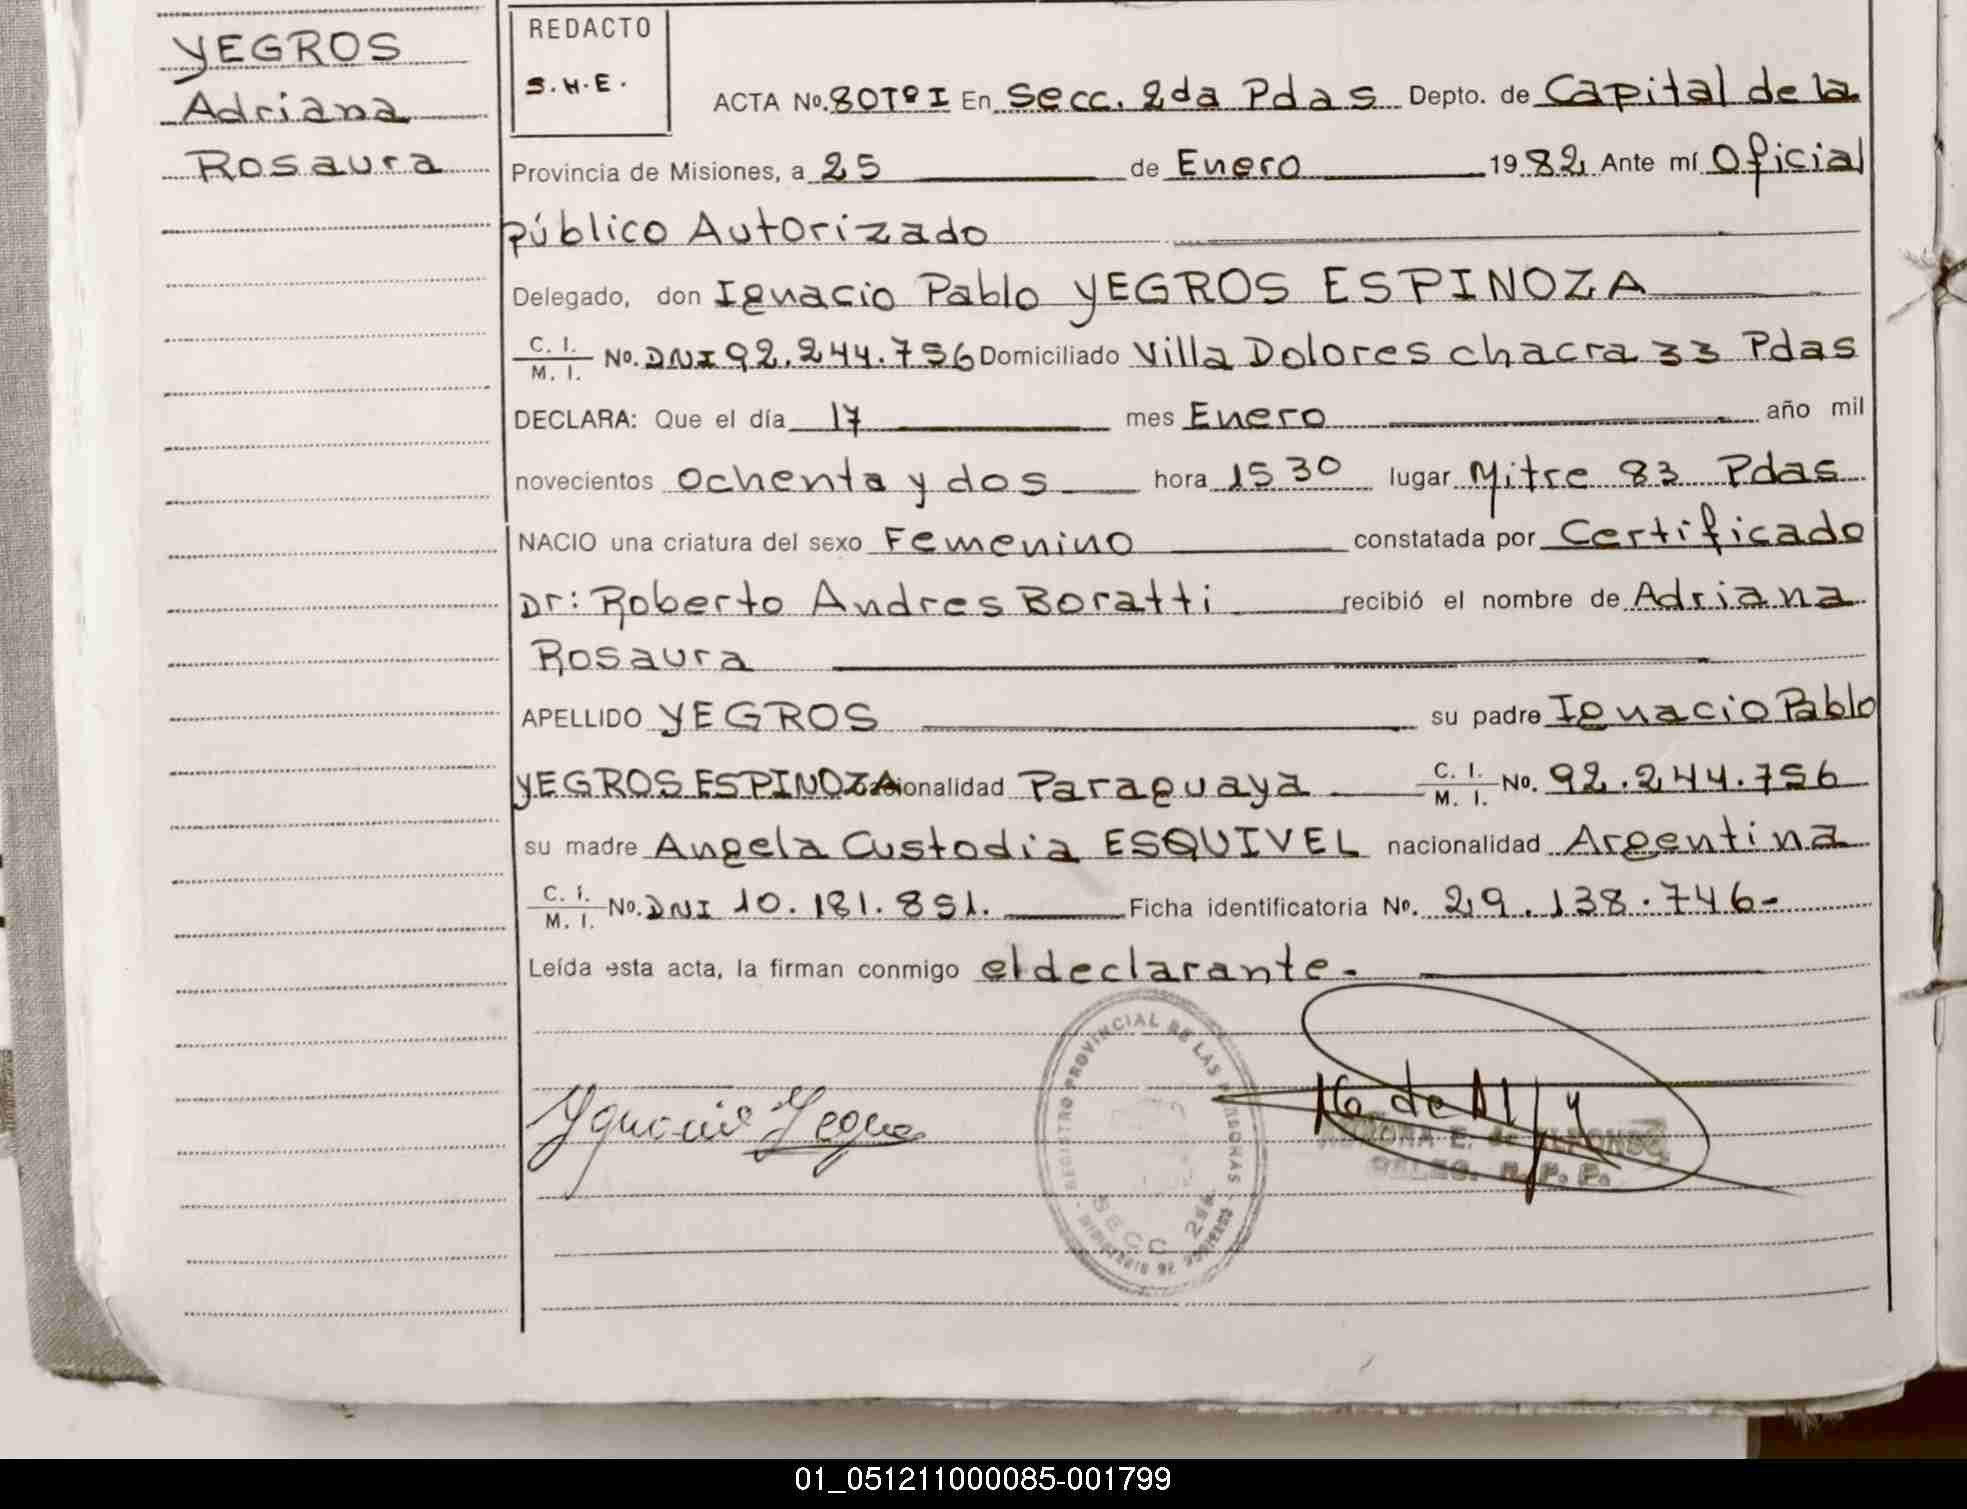 YEGROS
Adriana
Rosaura
REDACTO
S.H.E.
ACTA No. 80 Tº I En Secc. 2da Pdas Depto. de Capital de la
Provincia de Misiones, a 25 de Enero 1982 Ante mí Oficial
público Autorizado
Delegado, don Ignacio Pablo YEGROS ESPINOZA
C. I. / M. I. No. DNI 92.244.756 Domiciliado Villa Dolores chacra 33 Pdas
DECLARA: Que el día 17 mes Enero año mil
novecientos ochenta y dos hora 15 30 lugar Mitre 83 Pdas
NACIO una criatura del sexo Femenino constatada por Certificado
Dr: Roberto Andres Boratti recibió el nombre de Adriana
Rosaura
APELLIDO YEGROS su padre Ignacio Pablo
YEGROS ESPINOZA nacionalidad Paraguaya C. I. / M. I. No. 92.244.756
su madre Angela Custodia ESQUIVEL nacionalidad Argentina
C. I. / M. I. No. DNI 10.181.851. Ficha identificatoria No. 29.138.746-
Leída esta acta, la firman conmigo el declarante.
REGISTRO PROVINCIAL DE LAS PERSONAS
SECC 2da
Ignacio Yegros
E. de ALFONSO
DELEG. R. P. P.
01_051211000085-001799